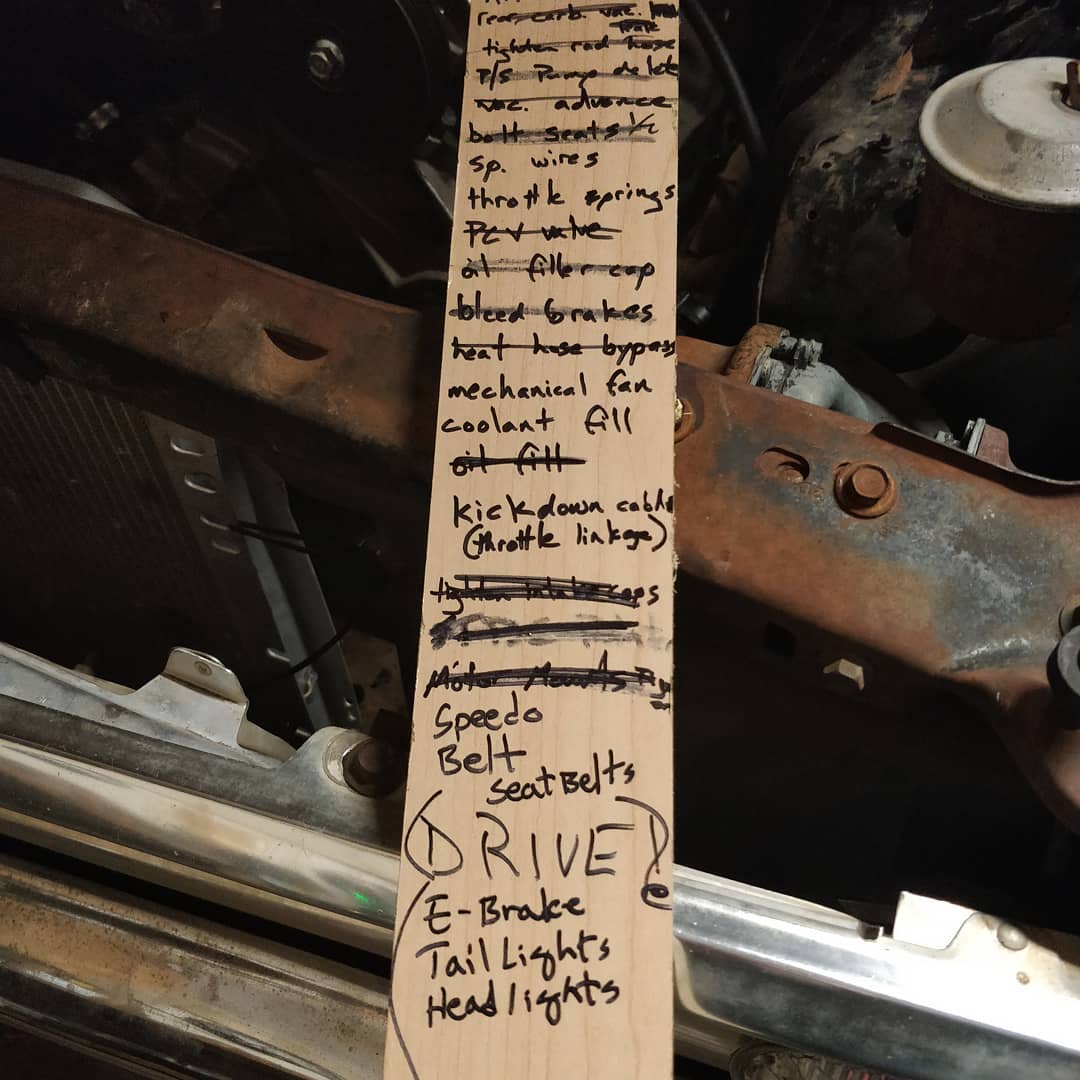 rear carb. vac.
tighten rad hose
P/S Pump delete
vac. advance
bolt seats 1/2
sp. wires
throttle springs
PCV valve
oil filler cap
bleed brakes
heat hose bypass
mechanical fan
coolant fill
oil fill
kickdown cable
(throttle linkage)
tighten intake caps
Motor Mounts
Speedo
Belt
SeatBelts
DRIVE!
E-Brake
Tail Lights
Headlights